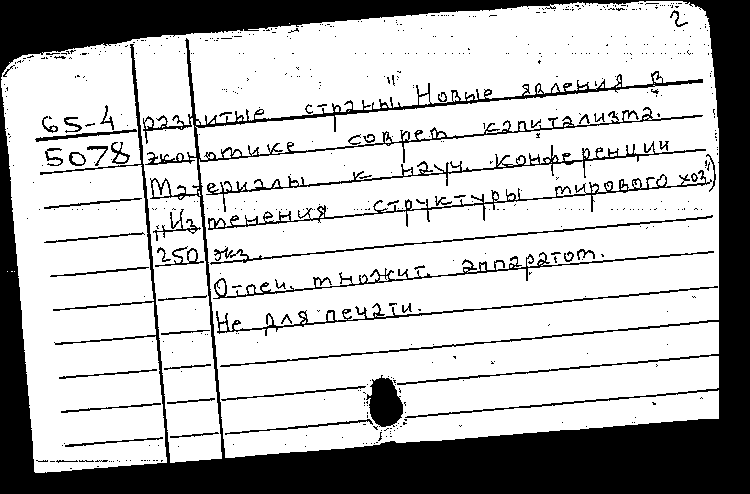 2
65-4 развитые страны". Новые явления в
5078 экономике соврем. капитализма.
Материалы к науч. конференции
„Изменения структуры мирового хоз.")
250 экз.
Отпеч. множит. аппаратом.
Не для печати.